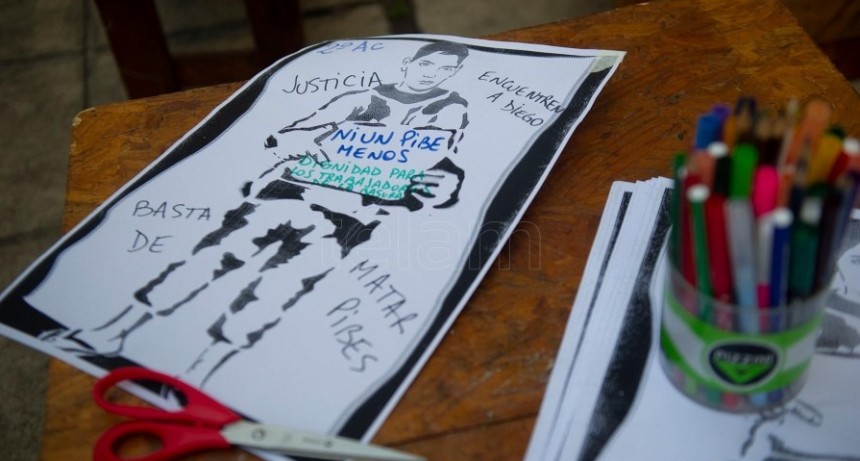 JUSTICIA
ENCUENTREN
A DIEGO
NI UN PIBE
MENOS
DIGNIDAD PARA
LOS TRABAJADORES
BASTA
DE
MATAR
PIBES
telam